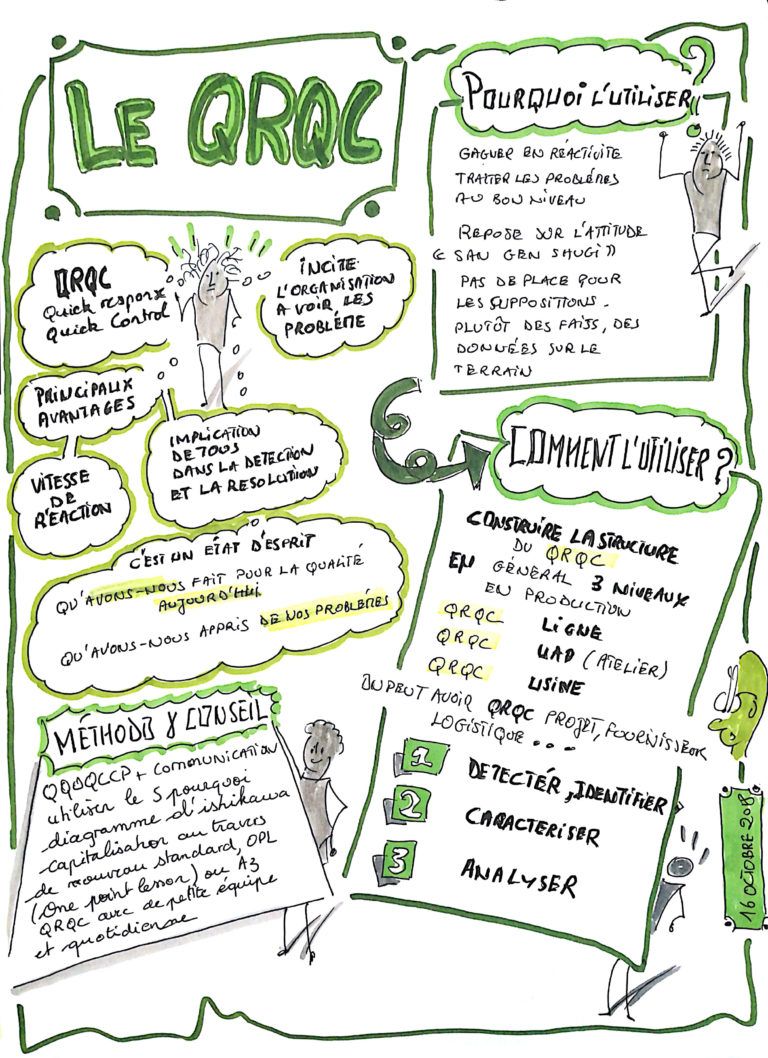 LE QRQC
POURQUOI L'UTILISER ?
GAGNER EN RÉACTIVITE
TRAITER LES PROBLÉMES
AU BON NIVEAU
REPOSE SUR L'ATTITUDE
« SAN GEN SHUGI »
PAS DE PLACE POUR
LES SUPPOSITIONS.
PLUTÔT DES FAITS, DES
DONNÉES SUR LE
TERRAIN
QRQC
Quick response
Quick Control
INCITE
L'ORGANISATION
A VOIR LES
PROBLÉME
PRINCIPAUX
AVANTAGES
VITESSE
DE
RÉACTION
IMPLICATION
DE TOUS
DANS LA DETECTION
ET LA RESOLUTION
C'EST UN ETAT D'ESPRIT
QU'AVONS-NOUS FAIT POUR LA QUALITÉ
AUJOURD'HUI
QU'AVONS-NOUS APPRIS DE NOS PROBLÉMES
COMMENT L'UTILISER ?
CONSTRUIRE LA STRUCTURE
DU QRQC
EN GÉNÉRAL 3 NIVEAUX
EN PRODUCTION
QRQC LIGNE
QRQC UAP (ATELIER)
QRQC USINE
ON PEUT AVOIR QRQC PROJET, FOURNISSEUR
LOGISTIQUE...
1 DETECTÉR, IDENTIFIER
2 CARACTERISER
3 ANALYSER
MÉTHODO & CONSEIL
QQOQCCP + COMMUNICATION
utiliser le 5 pourquoi
diagramme d'ishikawa
capitalisation au travers
de nouveau standard, OPL
(One point lesson) ou A3
QRQC avec de petite équipe
et quotidienne
16 OCTOBRE 2018